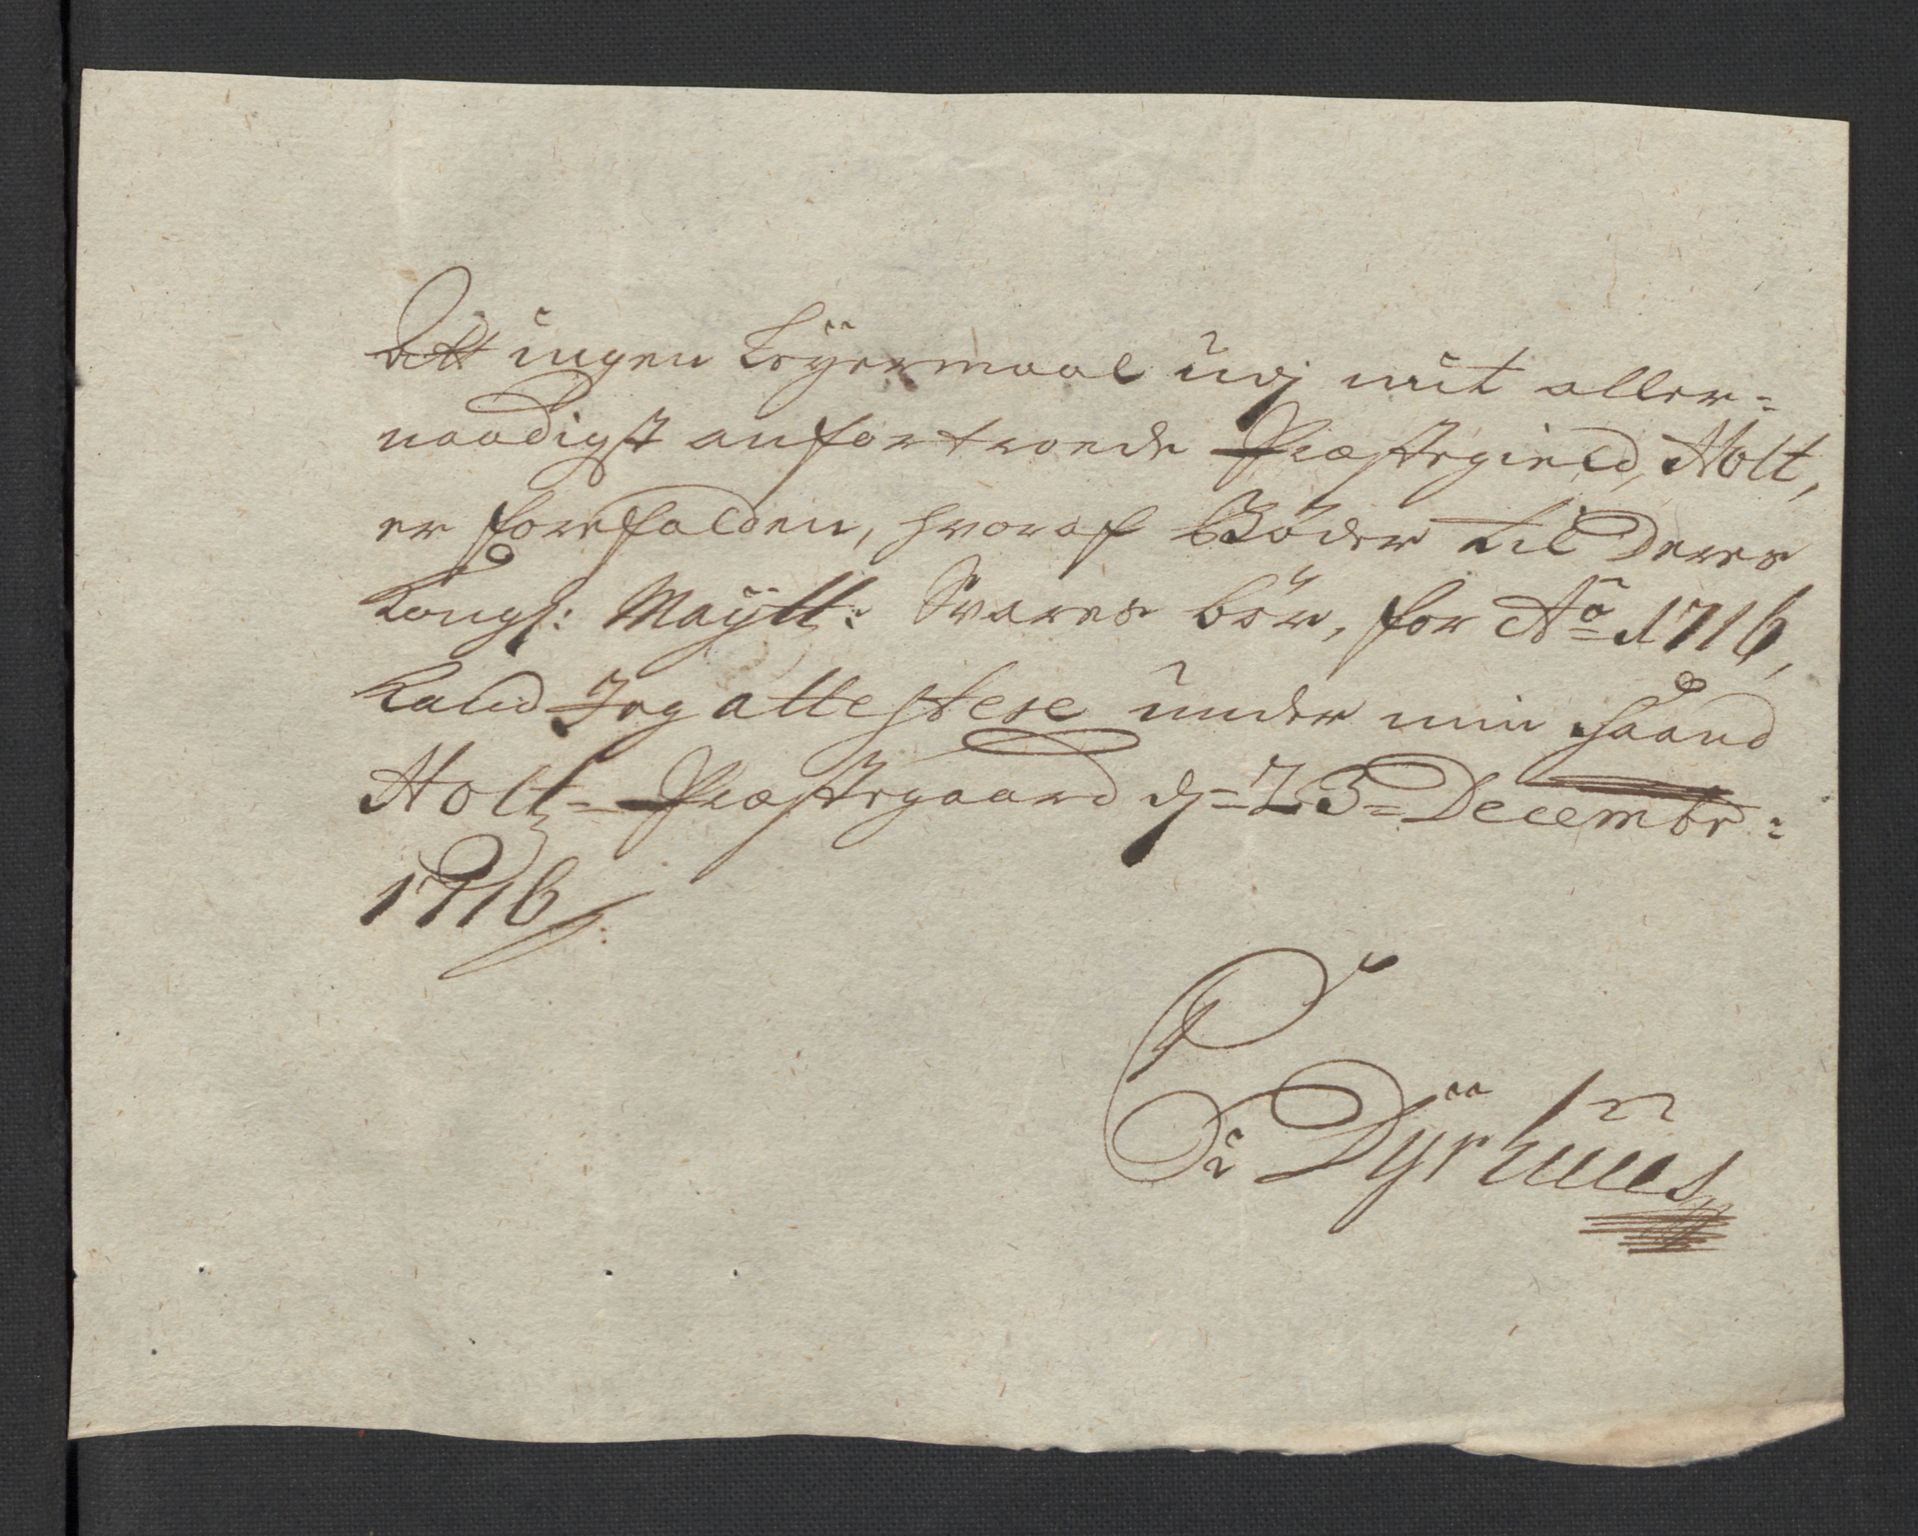 Att ingen Leÿermaal udj mit aller-
naadigst anfortroede Præstegield, Holt,
er forefalden, hvoraf Böder til Deres
Kongl: Maÿtt: Svares bör, for Ao 1716,
Kand Jeg attestere under min Haand
Holtz-Præstegaard dj 23 Decembr:
1716
P Dÿrhuus